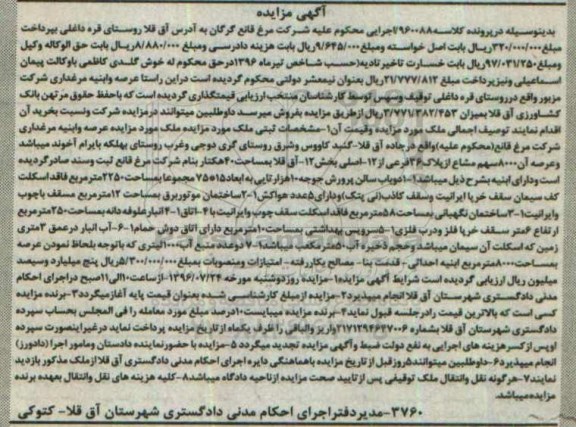 آگهی مزایده
بدینوسیله درپرونده کلاسه۹۶۰۰۸۸اجرایی محکوم علیه شرکت مرغ قانع گرگان به آدرس آق قلا روستای قره داغلی بپرداخت
مبلغ۳۲۰/۰۰۰/۰۰۰ریال بابت اصل خواسته ومبلغ۹/۶۴۵/۰۰۰ریال بابت هزینه دادرسی ومبلغ۸/۸۸۰/۰۰۰ریال بابت حق الوکاله وکیل
ومبلغ۹۷/۰۳۱/۲۵۰ریال بابت خسارت تاخیر تادیه(حسب شاخص تیرماه ۱۳۹۶درحق محکوم له خوش گلدی کاظمی باوکالت پیمان
اسماعیلی ونیزپرداخت مبلغ ۲۱/۷۷۷/۸۱۲ریال بعنوان نیمعشر دولتی محکوم گردیده است دراین راستا عرصه وابنیه مرغداری شرکت
مزبور واقع درروستای قره داغلی توقیف وسپس توسط کارشناسان منتخب ارزیابی قیمتگذاری گردیده است که باحفظ حقوق مرتهن بانک
کشاورزی آق قلا بمیزان ۳/۷۷۱/۳۸۲/۴۵۳ ریال ازطریق مزایده بفروش میرسد داوطلبین میتوانند درمزایده شرکت ونسبت بخرید آن
اقدام نمایند توصیف اجمالی ملک مورد مزایده وقیمت آن۱-مشخصات ثبتی ملک مورد مزایده ملک مورد مزایده عرصه وابنیه مرغداری
شرکت مرغ قانع(محکوم علیه)واقع درجاده آق قلا-گنبد کاووس وشرق روستای گری دوجی وغرب روستای بهلکه بایرام آخوند میباشد
وعرصه آن۸۰۰۰سهم مشاع ازپلاک۳۶فرعی از۱۲-اصلی بخش۱۲-آق قلا بمساحت۴۰هکتار بنام شرکت مرغ قانع ثبت وسند صادرگردیده
است ودارای ابنیه بشرح ذیل میباشد۱-۱دوباب سالن پرورش جوجه۱۰هزارتایی به ابعاد۱۵*۷۵ مجموعا بمساحت۲۲۵۰مترمربع فاقداسکلت
کف سیمان سقف خرپا ایرانیت وسقف کاذب(نی پتک)ودارای۵عدد هواکش۱-۲ساختمان موتوربرق بمساحت ۱۲مترمربع مسقف باچوب
وایرانیت۱-۳ساختمان نگهبانی بمساحت۵۸مترمربع فاقداسکلت سقف چوب وایرانیت با۴-اتاق۱-۴انبارعلوفه دانه بمساحت۲۵۰مترمربع
ارتفاع ۶متر سقف خرپا فلز ودرب فلزی۱-۵سرویس بهداشتی بمساحت۱۰مترمربع دارای اتاق دوش حمام۱-۶-آب انبار درعمق ۲متری
زمین که اسکلت آن سیمان میباشدوحجم ذخیره آب۵۰مترمکعب میباشد۱-۷دوعدد منبع آب۱۰۰۰لیتری که باتوجه بلحاظ نمودن عرصه
بمساحت۸۰۰۰مترمربع ابنیه احداثی-قدمت بنا-مصالح بکاررفته-امتیازات ومنصوبات بمبلغ۵/۳۰۰/۰۰۰/۰۰۰ریال پنج میلیارد وسیصد
میلیون ریال ارزیابی گردیده است شرایط آگهی مزایده۱-مزایده روزدوشنبه مورخه ۱۳۹۶/۰۷/۲۴-ازساعت۱۰الی۱۱صبح دراجرای احکام
مدنی دادگستری شهرستان آق قلاانجام میپذیرد۲-مزایده ازمبلغ کارشناسی شده بعنوان قیمت پایه آغازمیگردد۳-برنده مزایده
کسی است که بالاترین قیمت رادرجلسه قبول نماید۴-برنده مزایده میبایست۱۰درصد مبلغ مورد معامله را فی المجلس بحساب سپرده
دادگستری شهرستان آق قلا بشماره ۲۱۷۱۲۹۴۶۲۷۰۰۶واریز والباقی را ظرف یکماه از تاریخ مزایده پرداخت نماید درغیراینصورت سپرده
اوپس ازکسرهزینه های اجرایی به نفع دولت ضبط وآگهی مزایده تجدید میگردد ۵-مزایده با حضورنماینده دادستان ومامور اجرا (دادورز)
انجام میپذیرد۶-داوطلبین میتوانند۵روزقبل ازتاریخ مزایده باهماهنگی دایره اجرای احکام مدنی دادگستری آق قلاازملک مذکور بازدید
نمایند۷-هرگونه نقل وانتقال ملک توقیفی پس ازتایید صحت مزایده ازناحیه دادگاه میباشد۸-کلیه هزینه های نقل وانتقال بعهده برنده
مزایده میباشد.
۳۷۶۰-مدیردفتراجرای احکام مدنی دادگستری شهرستان آق قلا- کتوکی